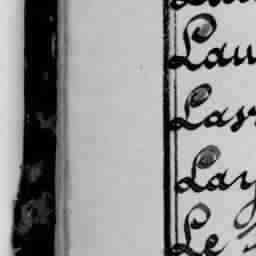 Lau
Las
Lay
Le